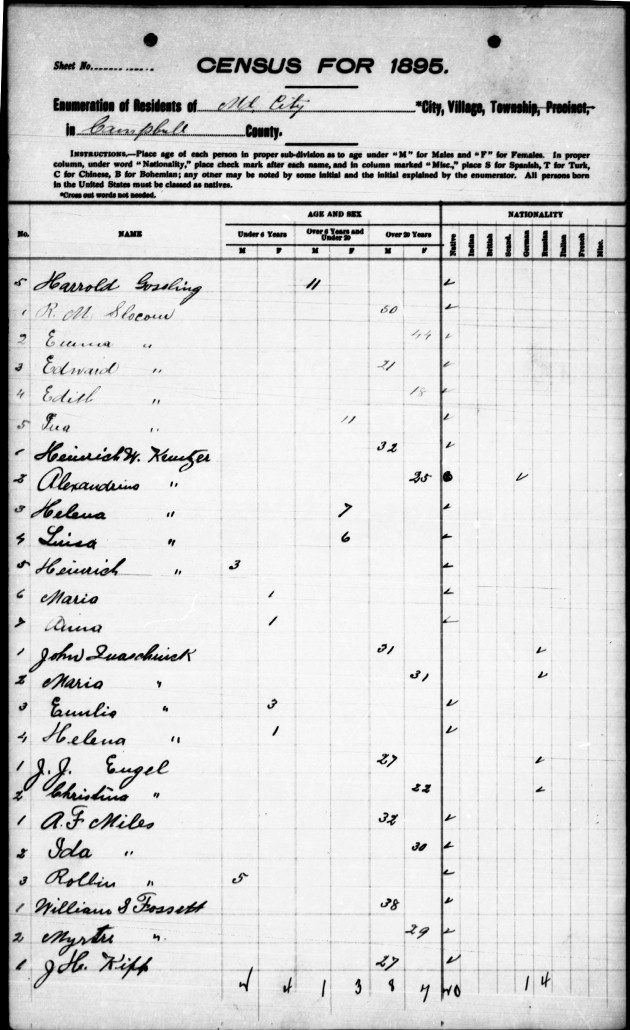 Sheet No.
CENSUS FOR 1895.
Enumeration of Residents of Mt. City *City, Village, Township, Precinct,
in Campbell County.
INSTRUCTIONS.—Place age of each person in proper sub-division as to age under "M" for Males and "F" for Females. In proper
column, under word "Nationality," place check mark after each name, and in column marked "Misc.," place S for Spanish, T for Turk,
C for Chinese, B for Bohemian; any other may be noted by some initial and the initial explained by the enumerator. All persons born
in the United States must be classed as natives.
*Cross out words not needed.
AGE AND SEX NATIONALITY
No. NAME Under 6 Years Over 6 Years and Under 20 Over 20 Years Native Indian British Scand. German Russian Italian French Misc.
M F M F M F
5 Harrold Gossling 11 ✓
1 R. M. Slocum 50 ✓
2 Emma " 44 ✓
3 Edward " 21 ✓
4 Edith " 18 ✓
5 " 11 ✓
1 Heinrich W. 32 ✓
2 Alexandrina " 25 ✓
3 Helena " 7 ✓
4 Luisa " 6 ✓
5 Heinrich " 3 ✓
6 Maria 1 ✓
7 Anna 1 ✓
1 John 31 ✓
2 Maria " 31 ✓
3 Emilio " 3 ✓
4 Helena " 1 ✓
1 J. J. Engel 27 ✓
2 Christina " 22 ✓
1 A. F Miles 32 ✓
2 Ida " 30 ✓
3 Rollin " 5 ✓
1 William S Fossett 38 ✓
2 Myrtre " 29 ✓
1 J H. Kipp 27 ✓
4 1 3 8 7 20 1 4